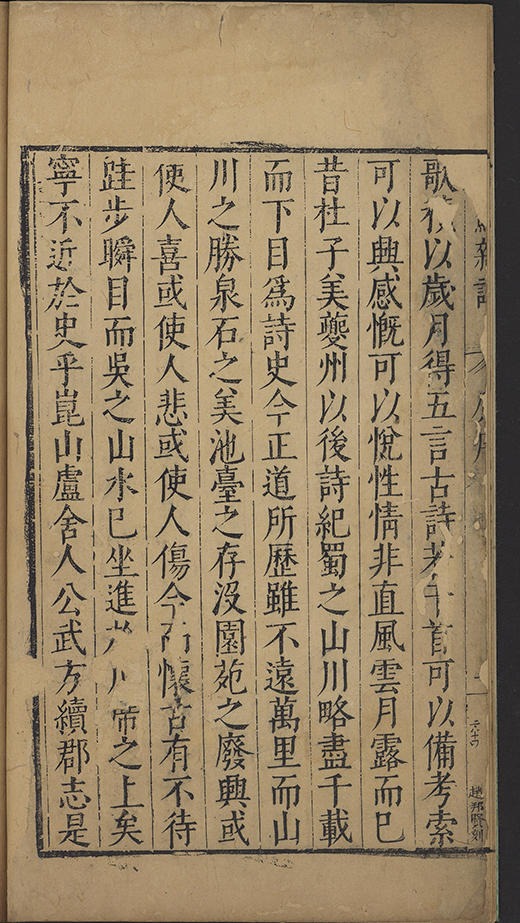 歌以歲月得五言古詩若干首可以備考索
可以興感慨可以悅性情非直風雲月露而已
昔杜子美夔州以後詩紀蜀之山川略盡千載
而下目爲詩史今正道所歷雖不遠萬里而山
川之勝泉石之美池臺之存沒園苑之廢興或
使人喜或使人悲或使人傷今而懷古有不待
跬步瞬目而吳之山水已坐進於几席之上矣
寧不近於史乎崑山盧舍人公武方續郡志是
趙邦賢刻